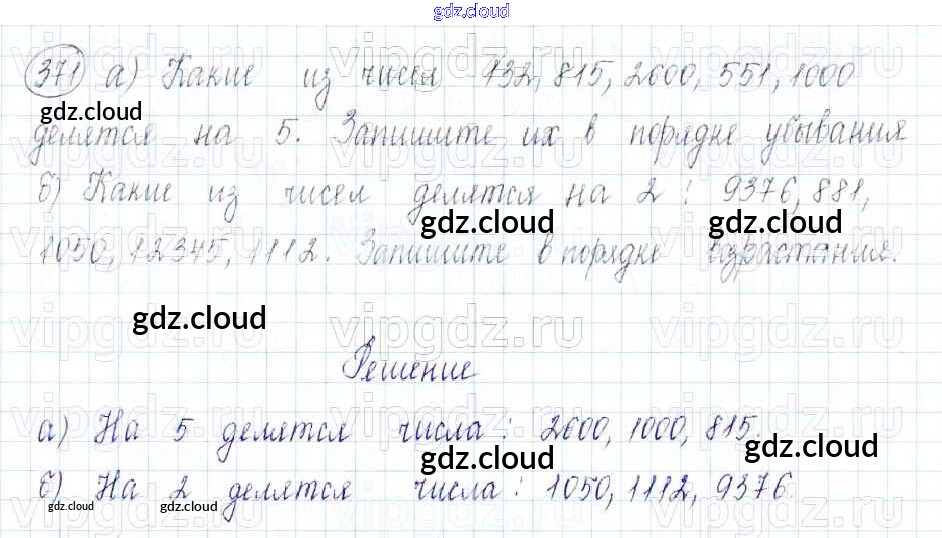 gdz.cloud
371 а) Какие из чисел 132, 815, 2600, 551, 1000
gdz.cloud
делятся на 5. Запишите их в порядке убывания
б) Какие из чисел делятся на 2: 9376, 881,
gdz.cloud gdz.cloud
1050, 12345, 1112. Запишите в порядке возрастания.
gdz.cloud
vipgdz.ru
Решение
а) На 5 делятся числа: 2600, 1000, 815.
gdz.cloud gdz.cloud
б) На 2 делятся числа: 1050, 1112, 9376.
gdz.cloud gdz.cloud